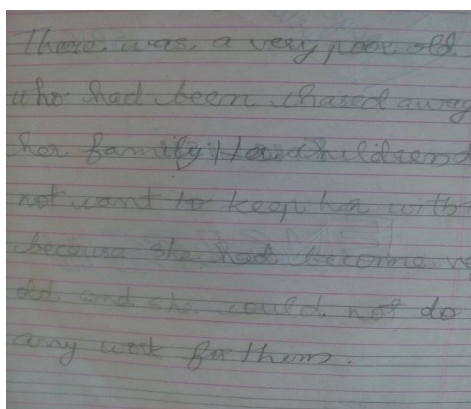 There was a very poor old
who had been chased away
her family. Her Childrend
not want to keep her with
because she had become ve
old and she could not do
any work for them.